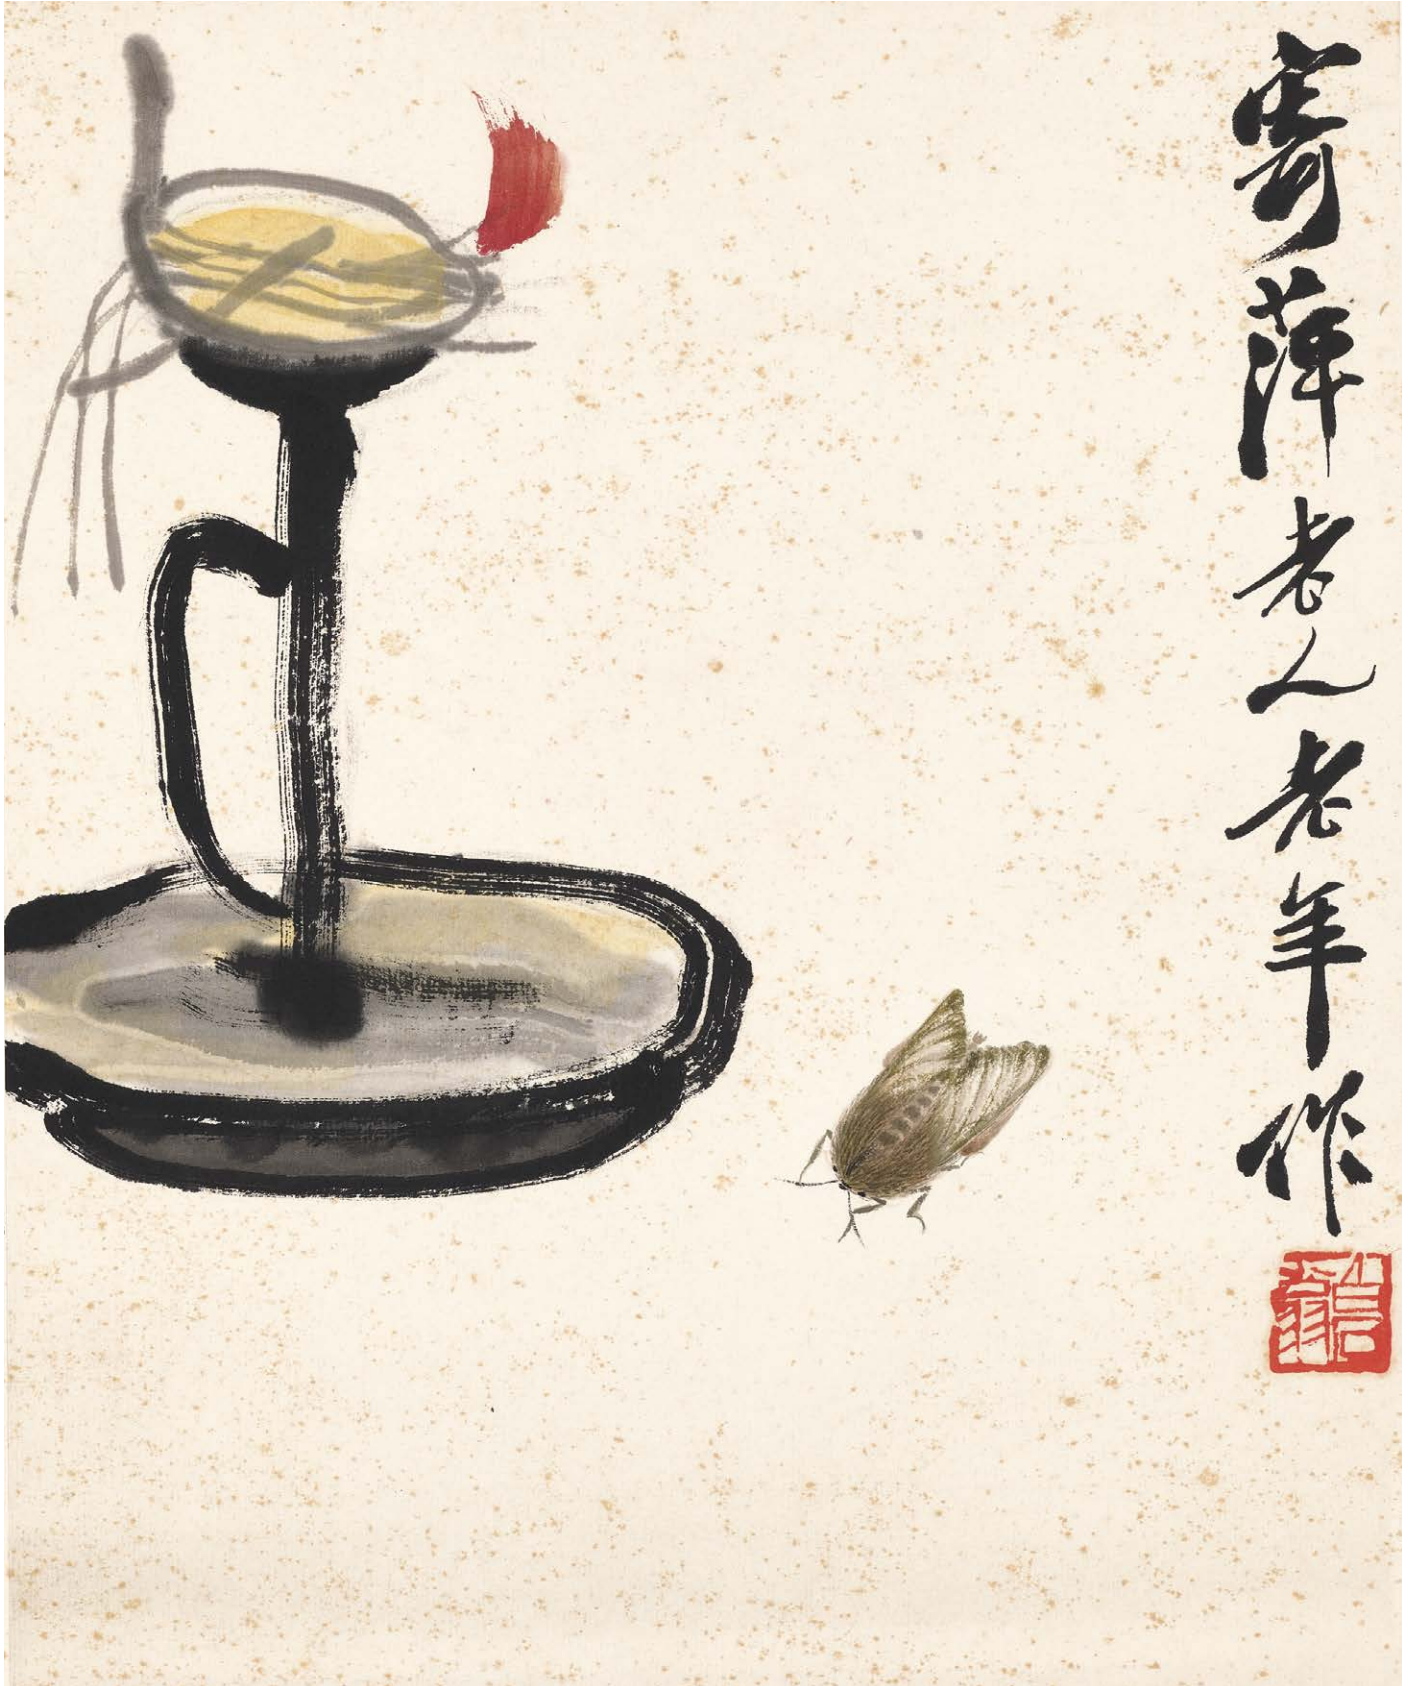 寄萍老人老年作
白石翁